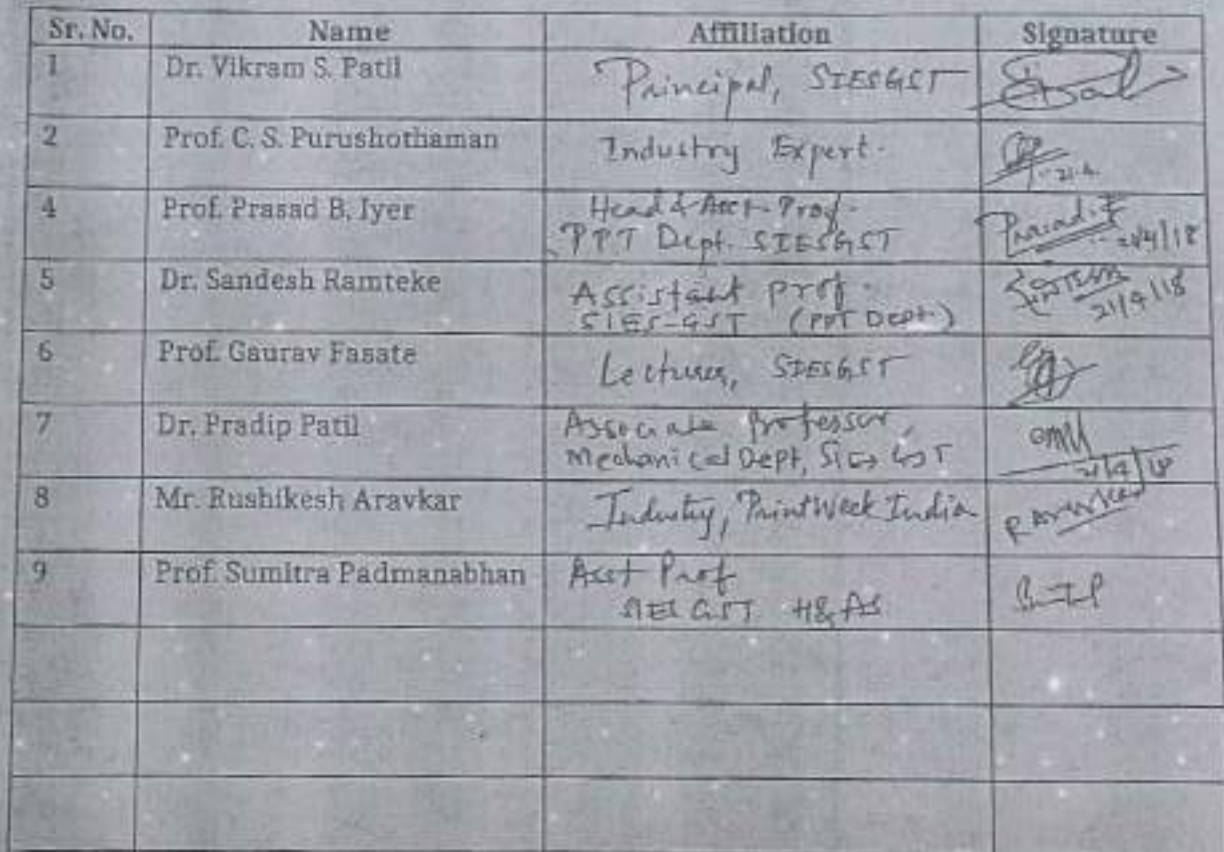 Sr. No. Name Affiliation Signature
1 Dr. Vikram S. Patil Principal, SIESGST
2 Prof. C. S. Purushothaman Industry Expert.
21.4.
4 Prof. Prasad B. Iyer Head & Asst. Prof.
PPT Dept. SIESGST Prasad
21/4/18
5 Dr. Sandesh Ramteke Assistant Prof.
SIES-GST (PPT Dept.) 21/4/18
6 Prof. Gaurav Fasate Lecturer, SIESGST
7 Dr. Pradip Patil Associate Professor,
Mechanical Dept, SIES GST
21/4/18
8 Mr. Rushikesh Aravkar Industry, PrintWeek India
9 Prof. Sumitra Padmanabhan Asst Prof
SIES GST H&AS